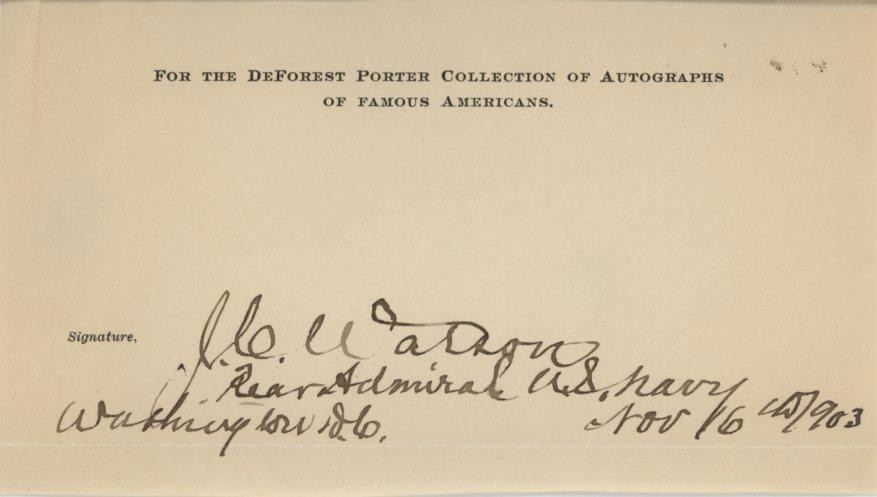 For the DeForest Porter Collection of Autographs
of famous Americans.
Signature, J. C. Watson
Rear Admiral U.S. Navy
Washington D.C. Nov 16th 1903